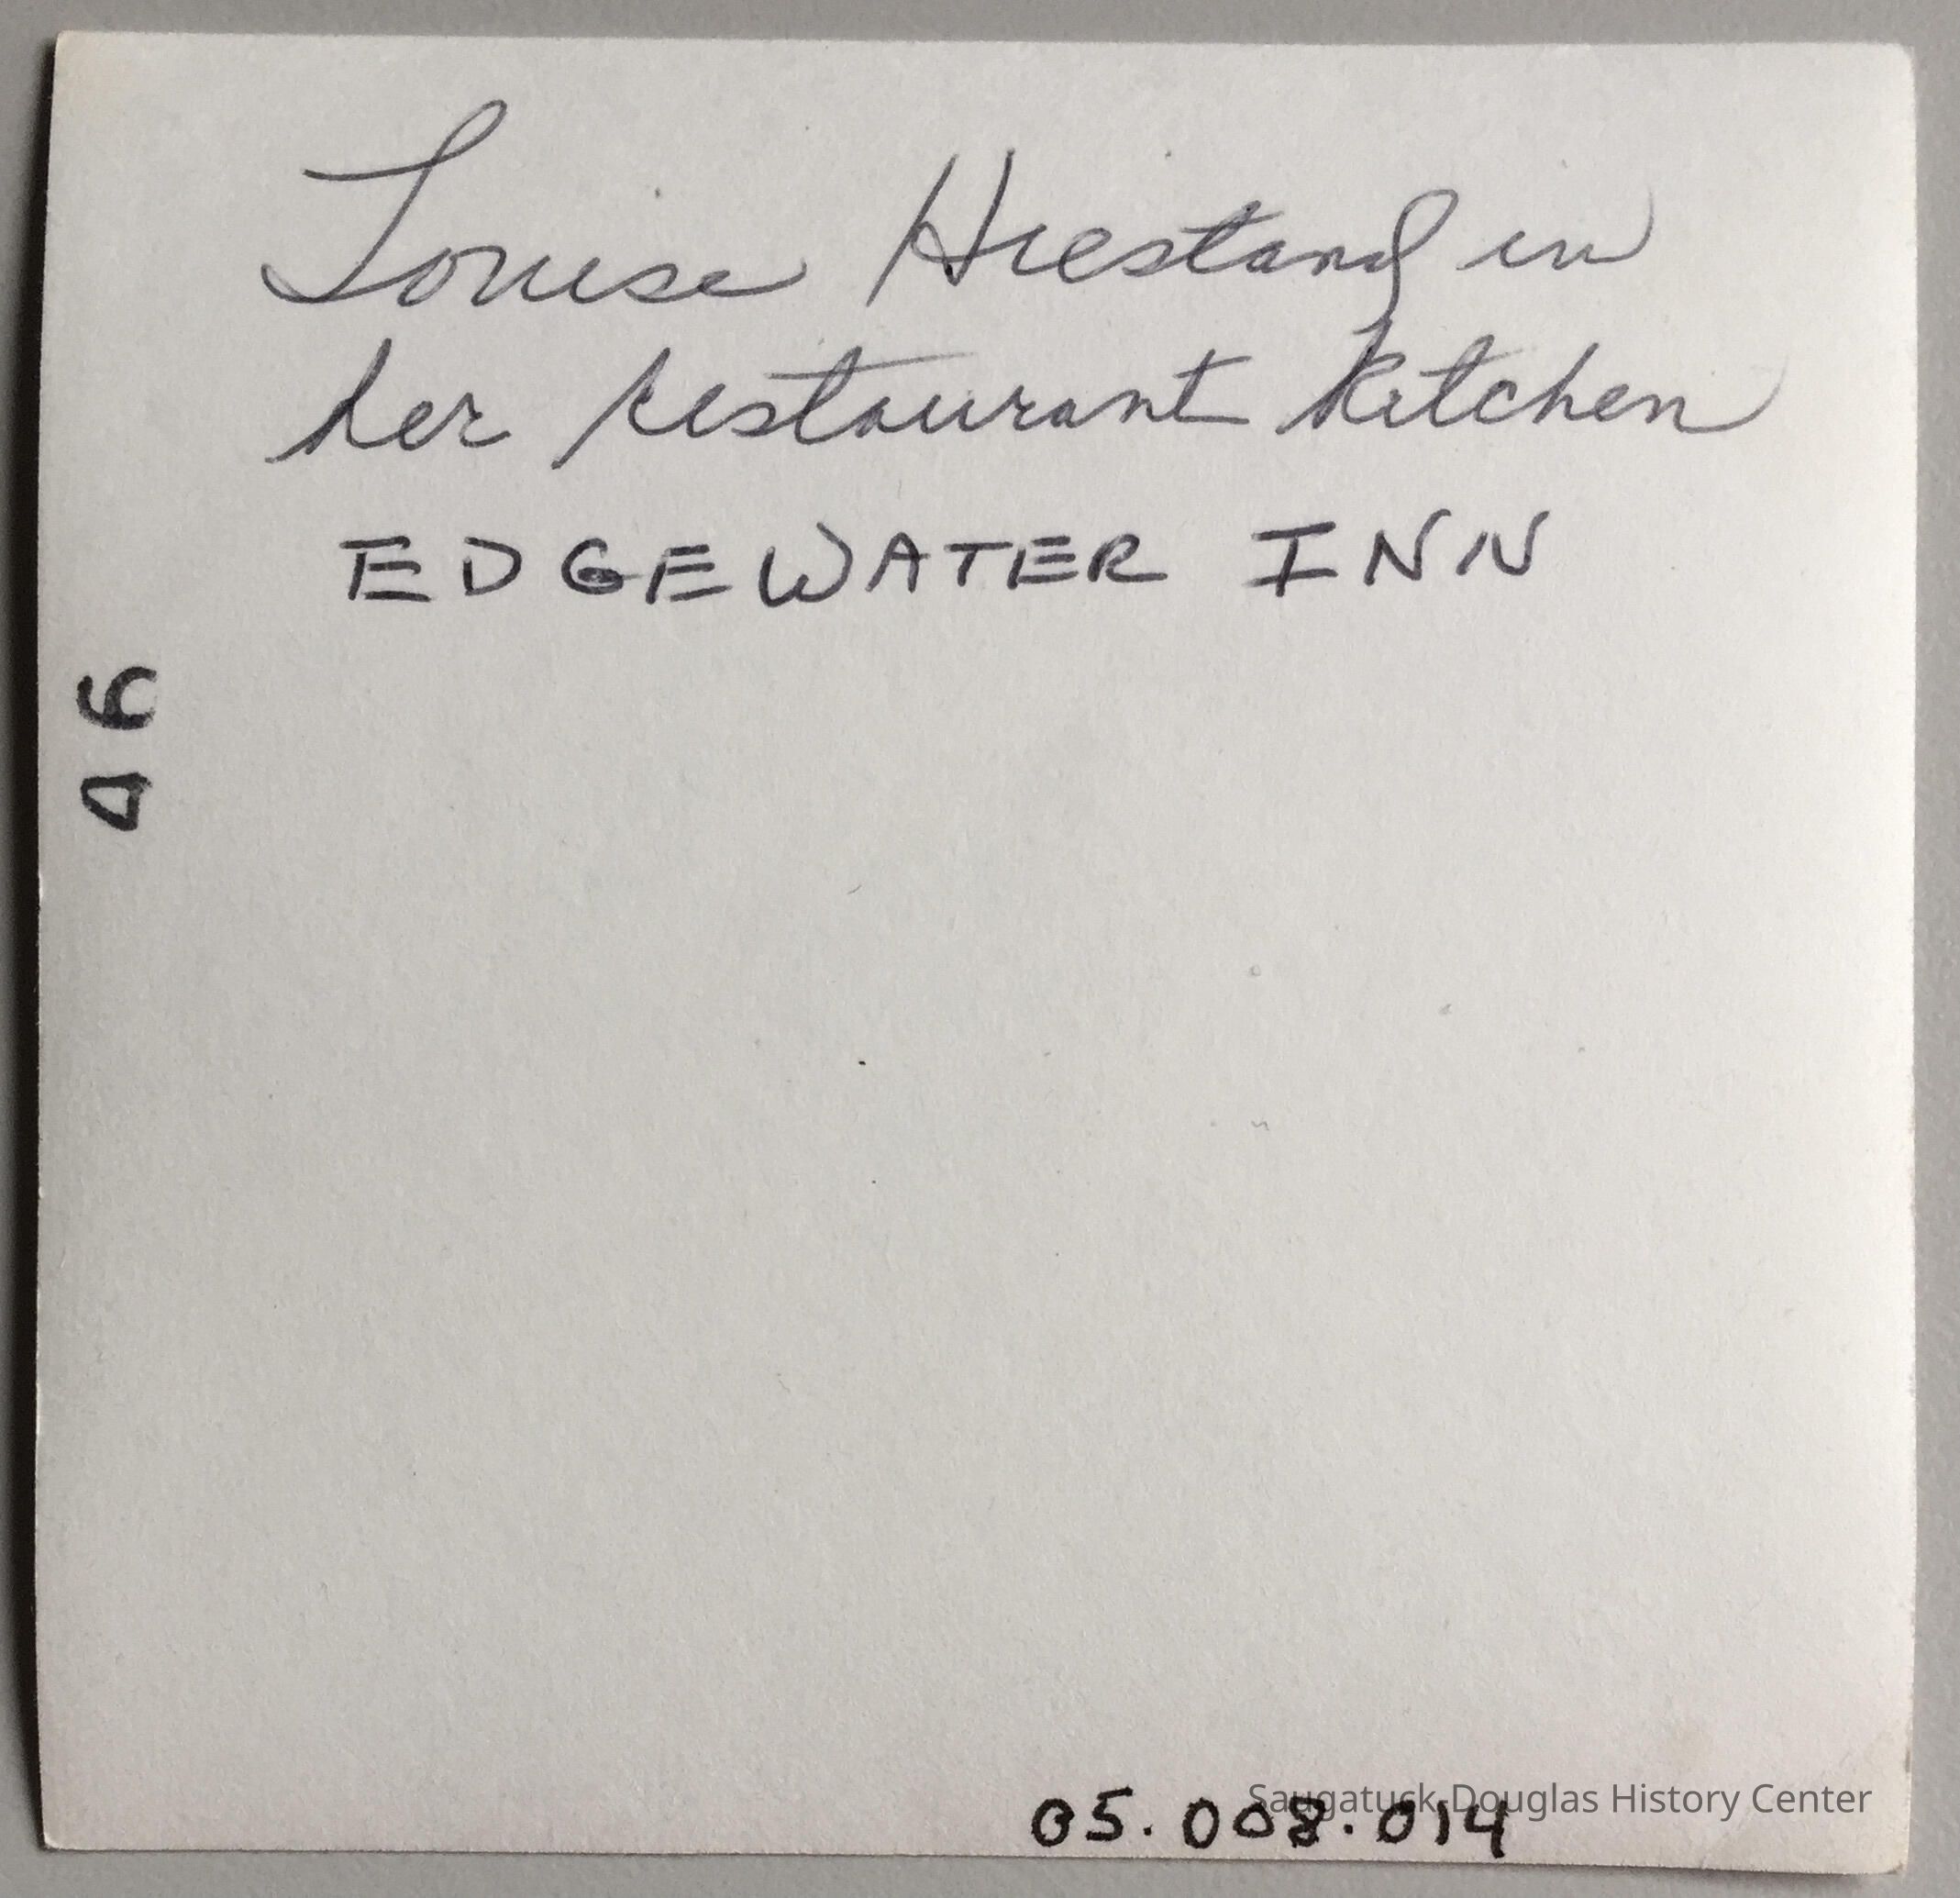 Louise Hiestand in
her restaurant kitchen
EDGEWATER INN
46
05.008.014
Saugatuck-Douglas History Center